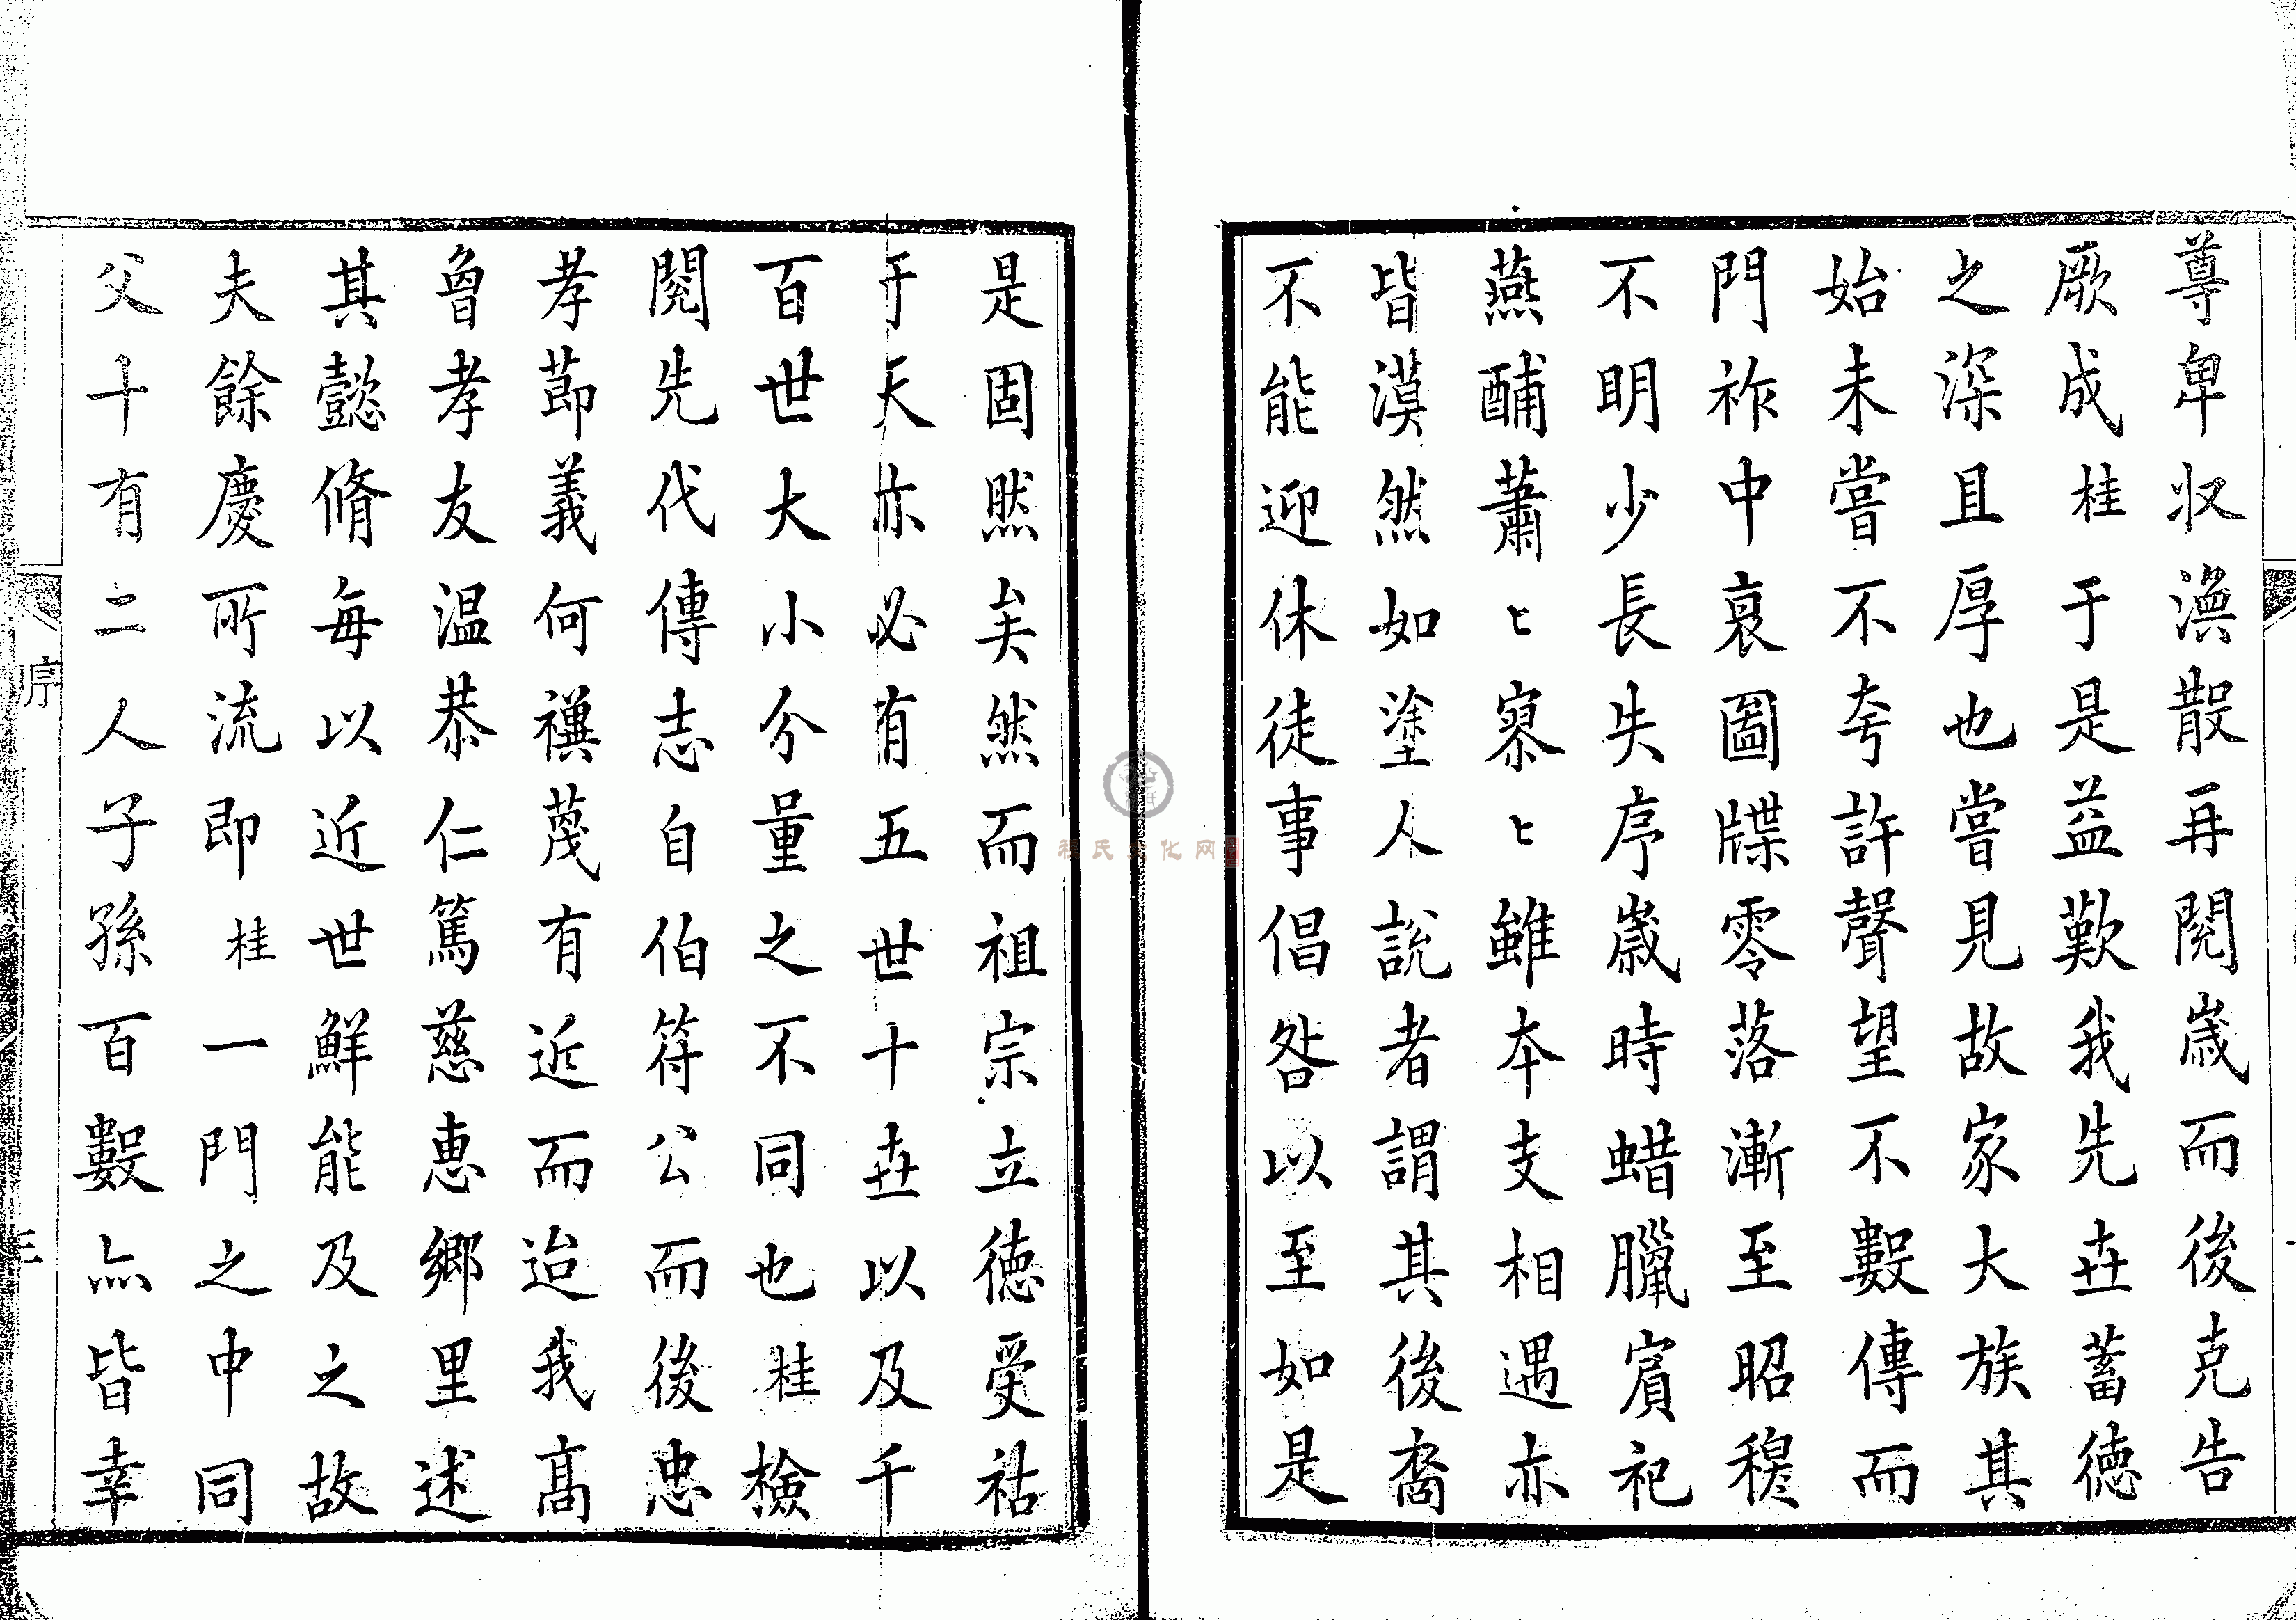 尊卑收渙散再閱歲而後克告
厥成桂于是益歎我先世蓄德
之深且厚也嘗見故家大族其
始未嘗不夸許聲望不數傳而
門祚中衰圖牒零落漸至昭穆
不明少長失序歲時蜡臘賓祀
燕酺蕭〻寥〻雖本支相遇亦
皆漠然如塗人說者謂其後裔
不能迎休徒事倡咎以至如是
是固然矣然而祖宗立德受祜
于天亦必有五世十世以及千
百世大小分量之不同也桂檢
閱先代傳志自伯符公而後忠
孝節義何禩蔑有近而迨我高
曾孝友溫恭仁篤慈惠鄉里述
其懿脩每以近世鮮能及之故
夫餘慶所流即桂一門之中同
父十有二人子孫百數亦皆幸
序
三
程氏文化网